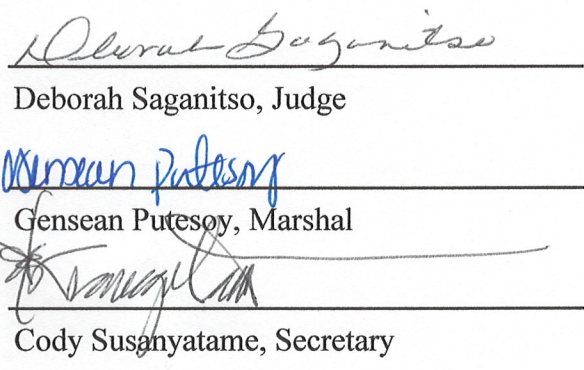 Deborah Saganitso
Deborah Saganitso, Judge
Gensean Putesoy
Gensean Putesoy, Marshal
Cody Susanyatame, Secretary